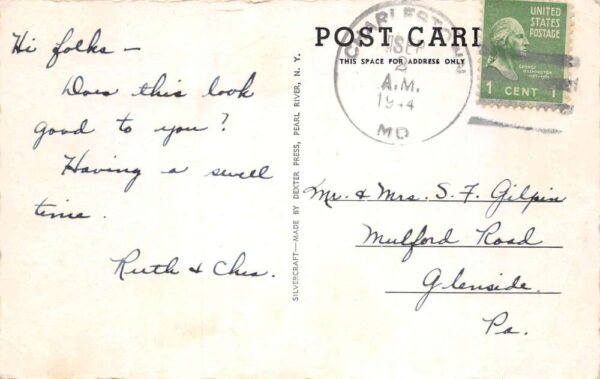 Hi folks —
Does this look
good to you?
Having a swell
time.
Ruth & Ches.
SILVERCRAFT—MADE BY DEXTER PRESS, PEARL RIVER, N. Y.
POST CARD
THIS SPACE FOR ADDRESS ONLY
SEP
2
A.M.
1944
MD
UNITED
STATES
POSTAGE
GEORGE
WASHINGTON
1 CENT 1
Mr. & Mrs. S. F. Gilpin
Mulford Road
Glenside.
Pa.